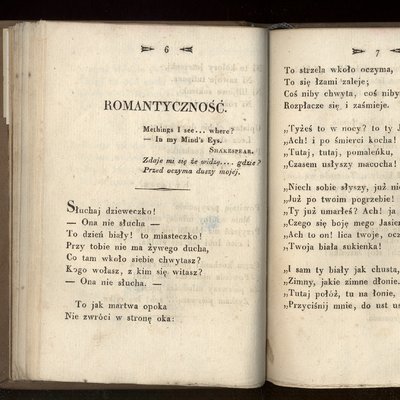 6
ROMANTYCZNOŚĆ.
Methings I see... where?
— In my Mind's Eys.
SHAKESPEAR.
Zdaje mi się że widzę.... gdzie?
Przed oczyma duszy mojej.
Słuchaj dzieweczko!
— Ona nie słucha —
To dzień biały! to miasteczko!
Przy tobie nie ma żywego ducha,
Co tam wkoło siebie chwytasz?
Kogo wołasz, z kim się witasz?
— Ona nie słucha. —
To jak martwa opoka
Nie zwróci w stronę oka:
7
To strzela wkoło oczyma,
To się łzami zaleje;
Coś niby chwyta, coś niby
Rozpłacze się i zaśmieje.
„Tyżeś to w nocy? to ty J
„Ach! i po śmierci kocha!
„Tutaj, tutaj, pomaleńku,
„Czasem usłyszy macocha!
„Niech sobie słyszy, już nie
„Już po twoim pogrzebie!
„Ty już umarłeś? Ach! ja
„Czego się boję mego Jasie
„Ach to on! lica twoje, oc
„Twoja biała sukienka!
„I sam ty biały jak chusta,
„Zimny, jakie zimne dłonie.
„Tutaj połóż, tu na łonie,
„Przyciśnij mnie, do ust us